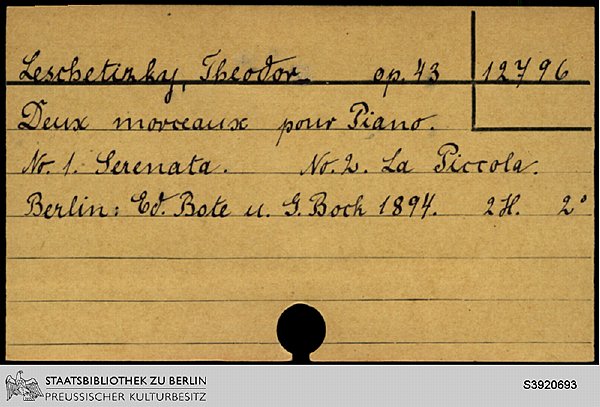 Leschetizky, Theodor op. 43 12796
Deux morceaux pour Piano.
No. 1. Serenata. No. 2. La Piccola.
Berlin: Ed. Bote u. G. Bock 1894. 2 H. 2°
STAATSBIBLIOTHEK ZU BERLIN
PREUSSISCHER KULTURBESITZ
S3920693